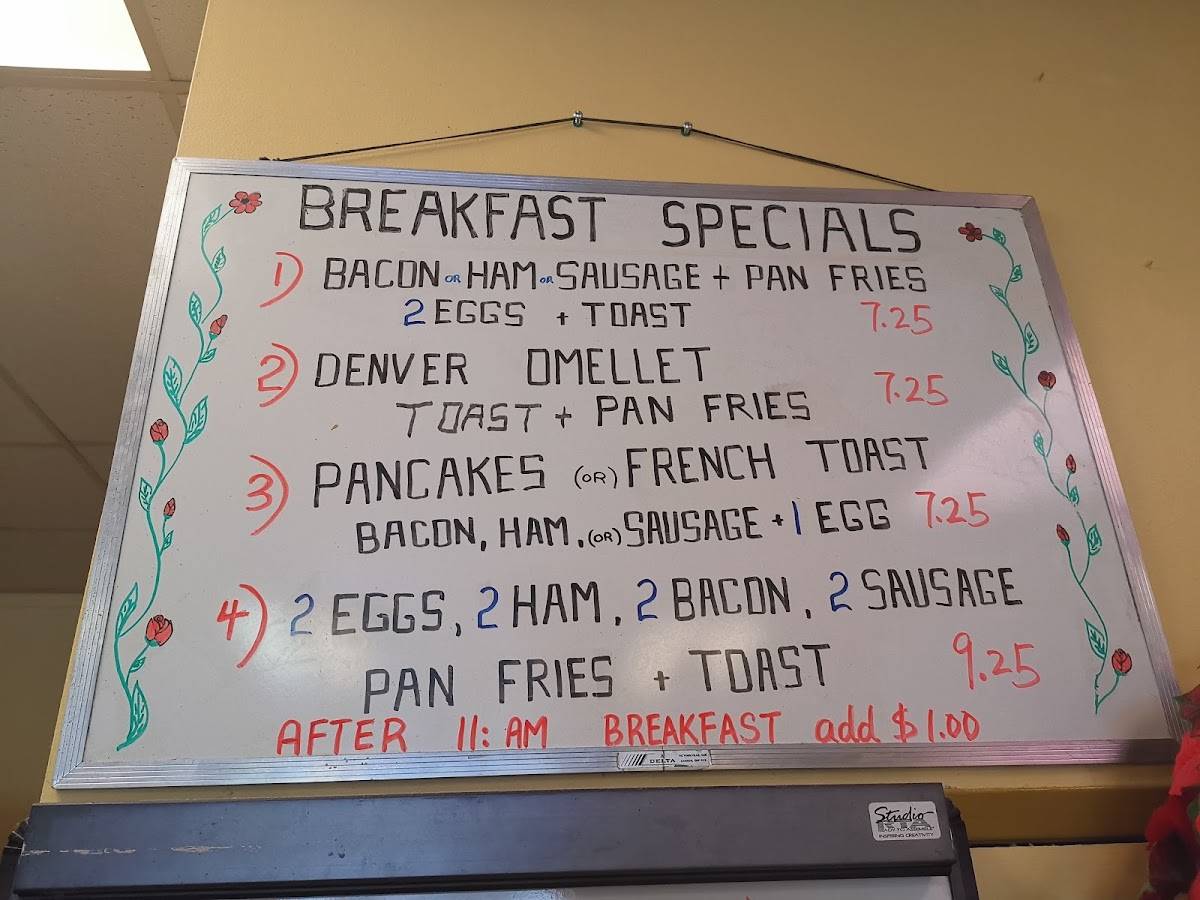 BREAKFAST SPECIALS
1) BACON OR HAM OR SAUSAGE + PAN FRIES
2 EGGS + TOAST 7.25
2) DENVER OMELLET
TOAST + PAN FRIES 7.25
3) PANCAKES (OR) FRENCH TOAST
BACON, HAM, (OR) SAUSAGE + 1 EGG 7.25
4) 2 EGGS, 2 HAM, 2 BACON, 2 SAUSAGE
PAN FRIES + TOAST 9.25
AFTER 11: AM BREAKFAST add $1.00
DELTA
Studio
RTA
READY TO ASSEMBLE
INSPIRING CREATIVITY